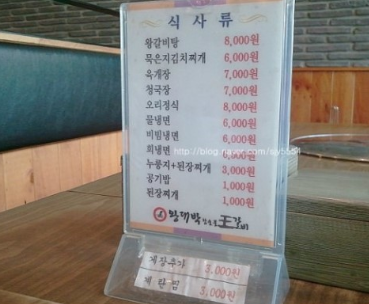 식사류
왕갈비탕 8,000원
묵은지김치찌개 6,000원
육개장 7,000원
청국장 7,000원
오리정식 8,000원
물냉면 6,000원
비빔냉면 6,000원
회냉면
누룽지+된장찌개 3,000원
공기밥 1,000원
된장찌개 1,000원
왕대박 王갈비
게장추가 3,000원
계란찜 3,000원
http://blog.naver.com/